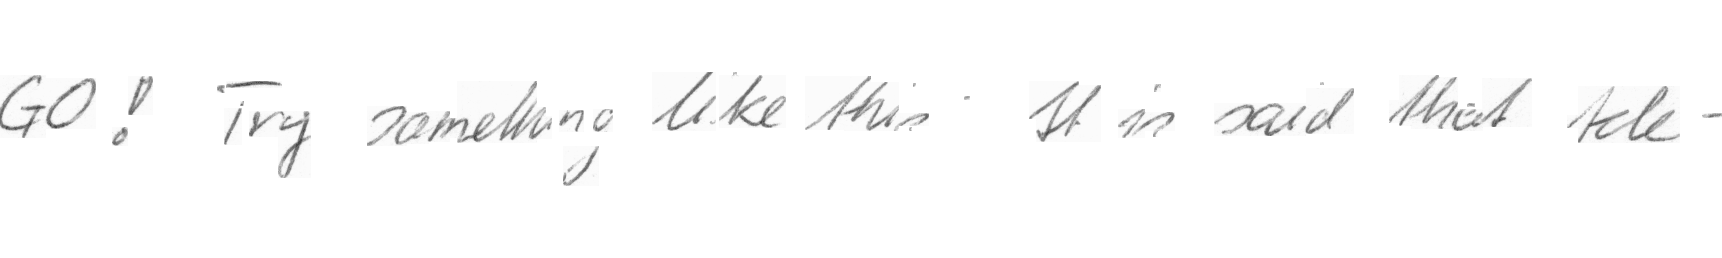 GO! Try something like this. It is said that tele-